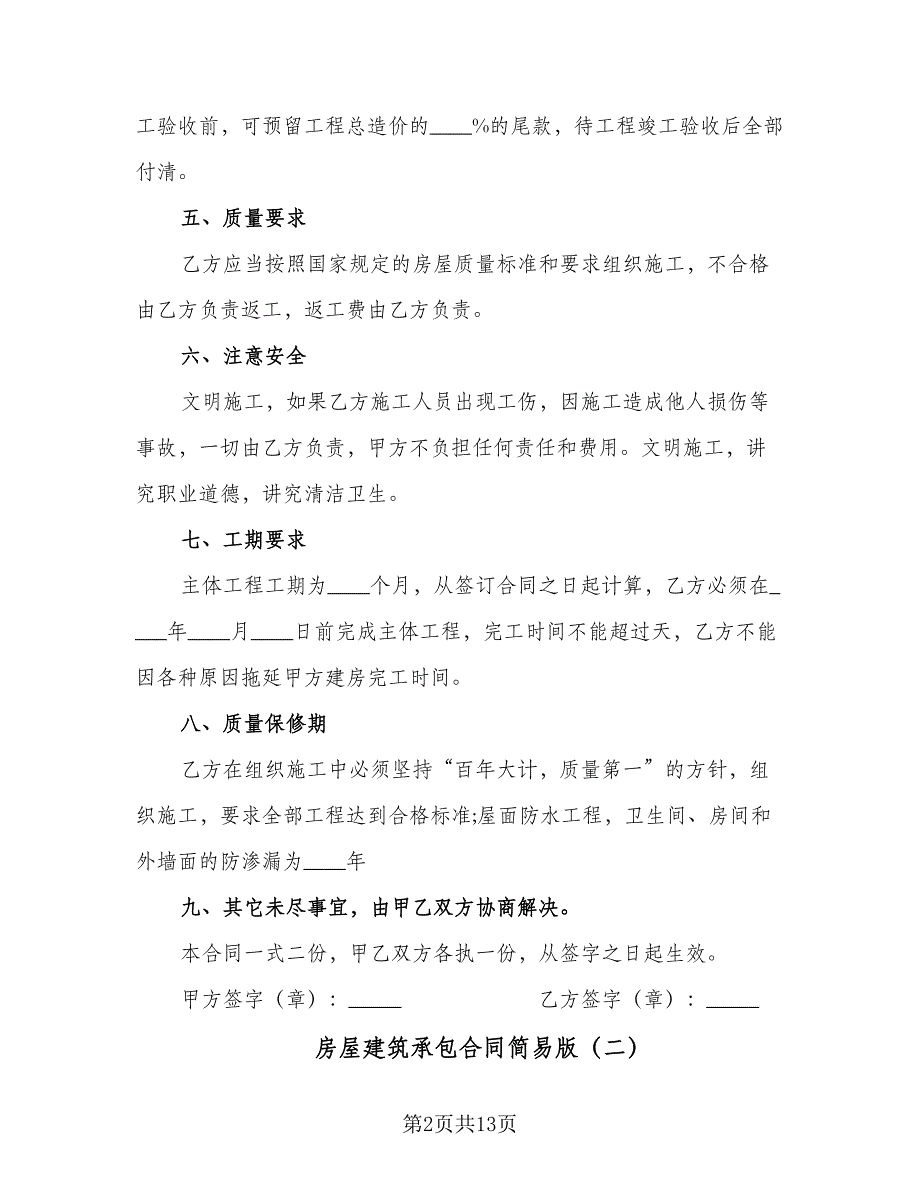 工验收前，可预留工程总造价的____%的尾款，待工程竣工验收后全部
付清。
五、质量要求
乙方应当按照国家规定的房屋质量标准和要求组织施工，不合格
由乙方负责返工，返工费由乙方负责。
六、注意安全
文明施工，如果乙方施工人员出现工伤，因施工造成他人损伤等
事故，一切由乙方负责，甲方不负担任何责任和费用。文明施工，讲
究职业道德，讲究清洁卫生。
七、工期要求
主体工程工期为____个月，从签订合同之日起计算，乙方必须在_
___年____月____日前完成主体工程，完工时间不能超过天，乙方不能
因各种原因拖延甲方建房完工时间。
八、质量保修期
乙方在组织施工中必须坚持“百年大计，质量第一”的方针，组
织施工，要求全部工程达到合格标准;屋面防水工程，卫生间、房间和
外墙面的防渗漏为____年
九、其它未尽事宜，由甲乙双方协商解决。
本合同一式二份，甲乙双方各执一份，从签字之日起生效。
甲方签字（章）：_____ 乙方签字（章）：_____
房屋建筑承包合同简易版（二）
第2页共13页